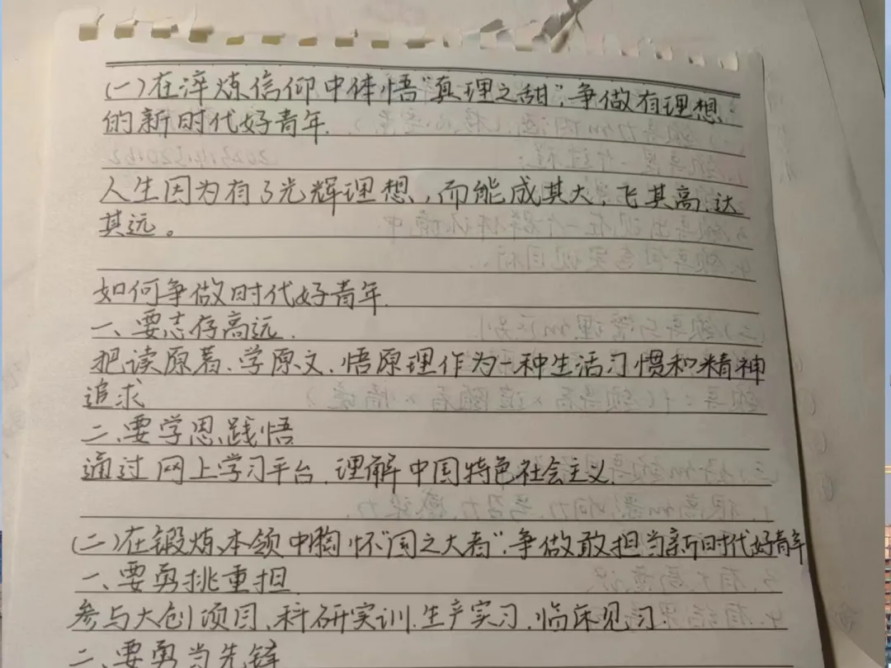 (一)在淬炼信仰中体悟“真理之甜”,争做有理想
的新时代好青年.
人生因为有了光辉理想,而能成其大,飞其高,达
其远。
如何争做时代好青年.
一、要志存高远.
把读原著.学原文.悟原理作为一种生活习惯和精神
追求
二.要学思践悟
通过网上学习平台.理解中国特色社会主义.
(二)在锻炼本领中胸怀“国之大者”.争做敢担当新时代好青年
一、要勇挑重担.
参与大创项目.科研实训.生产实习.临床见习
二、要勇当先锋